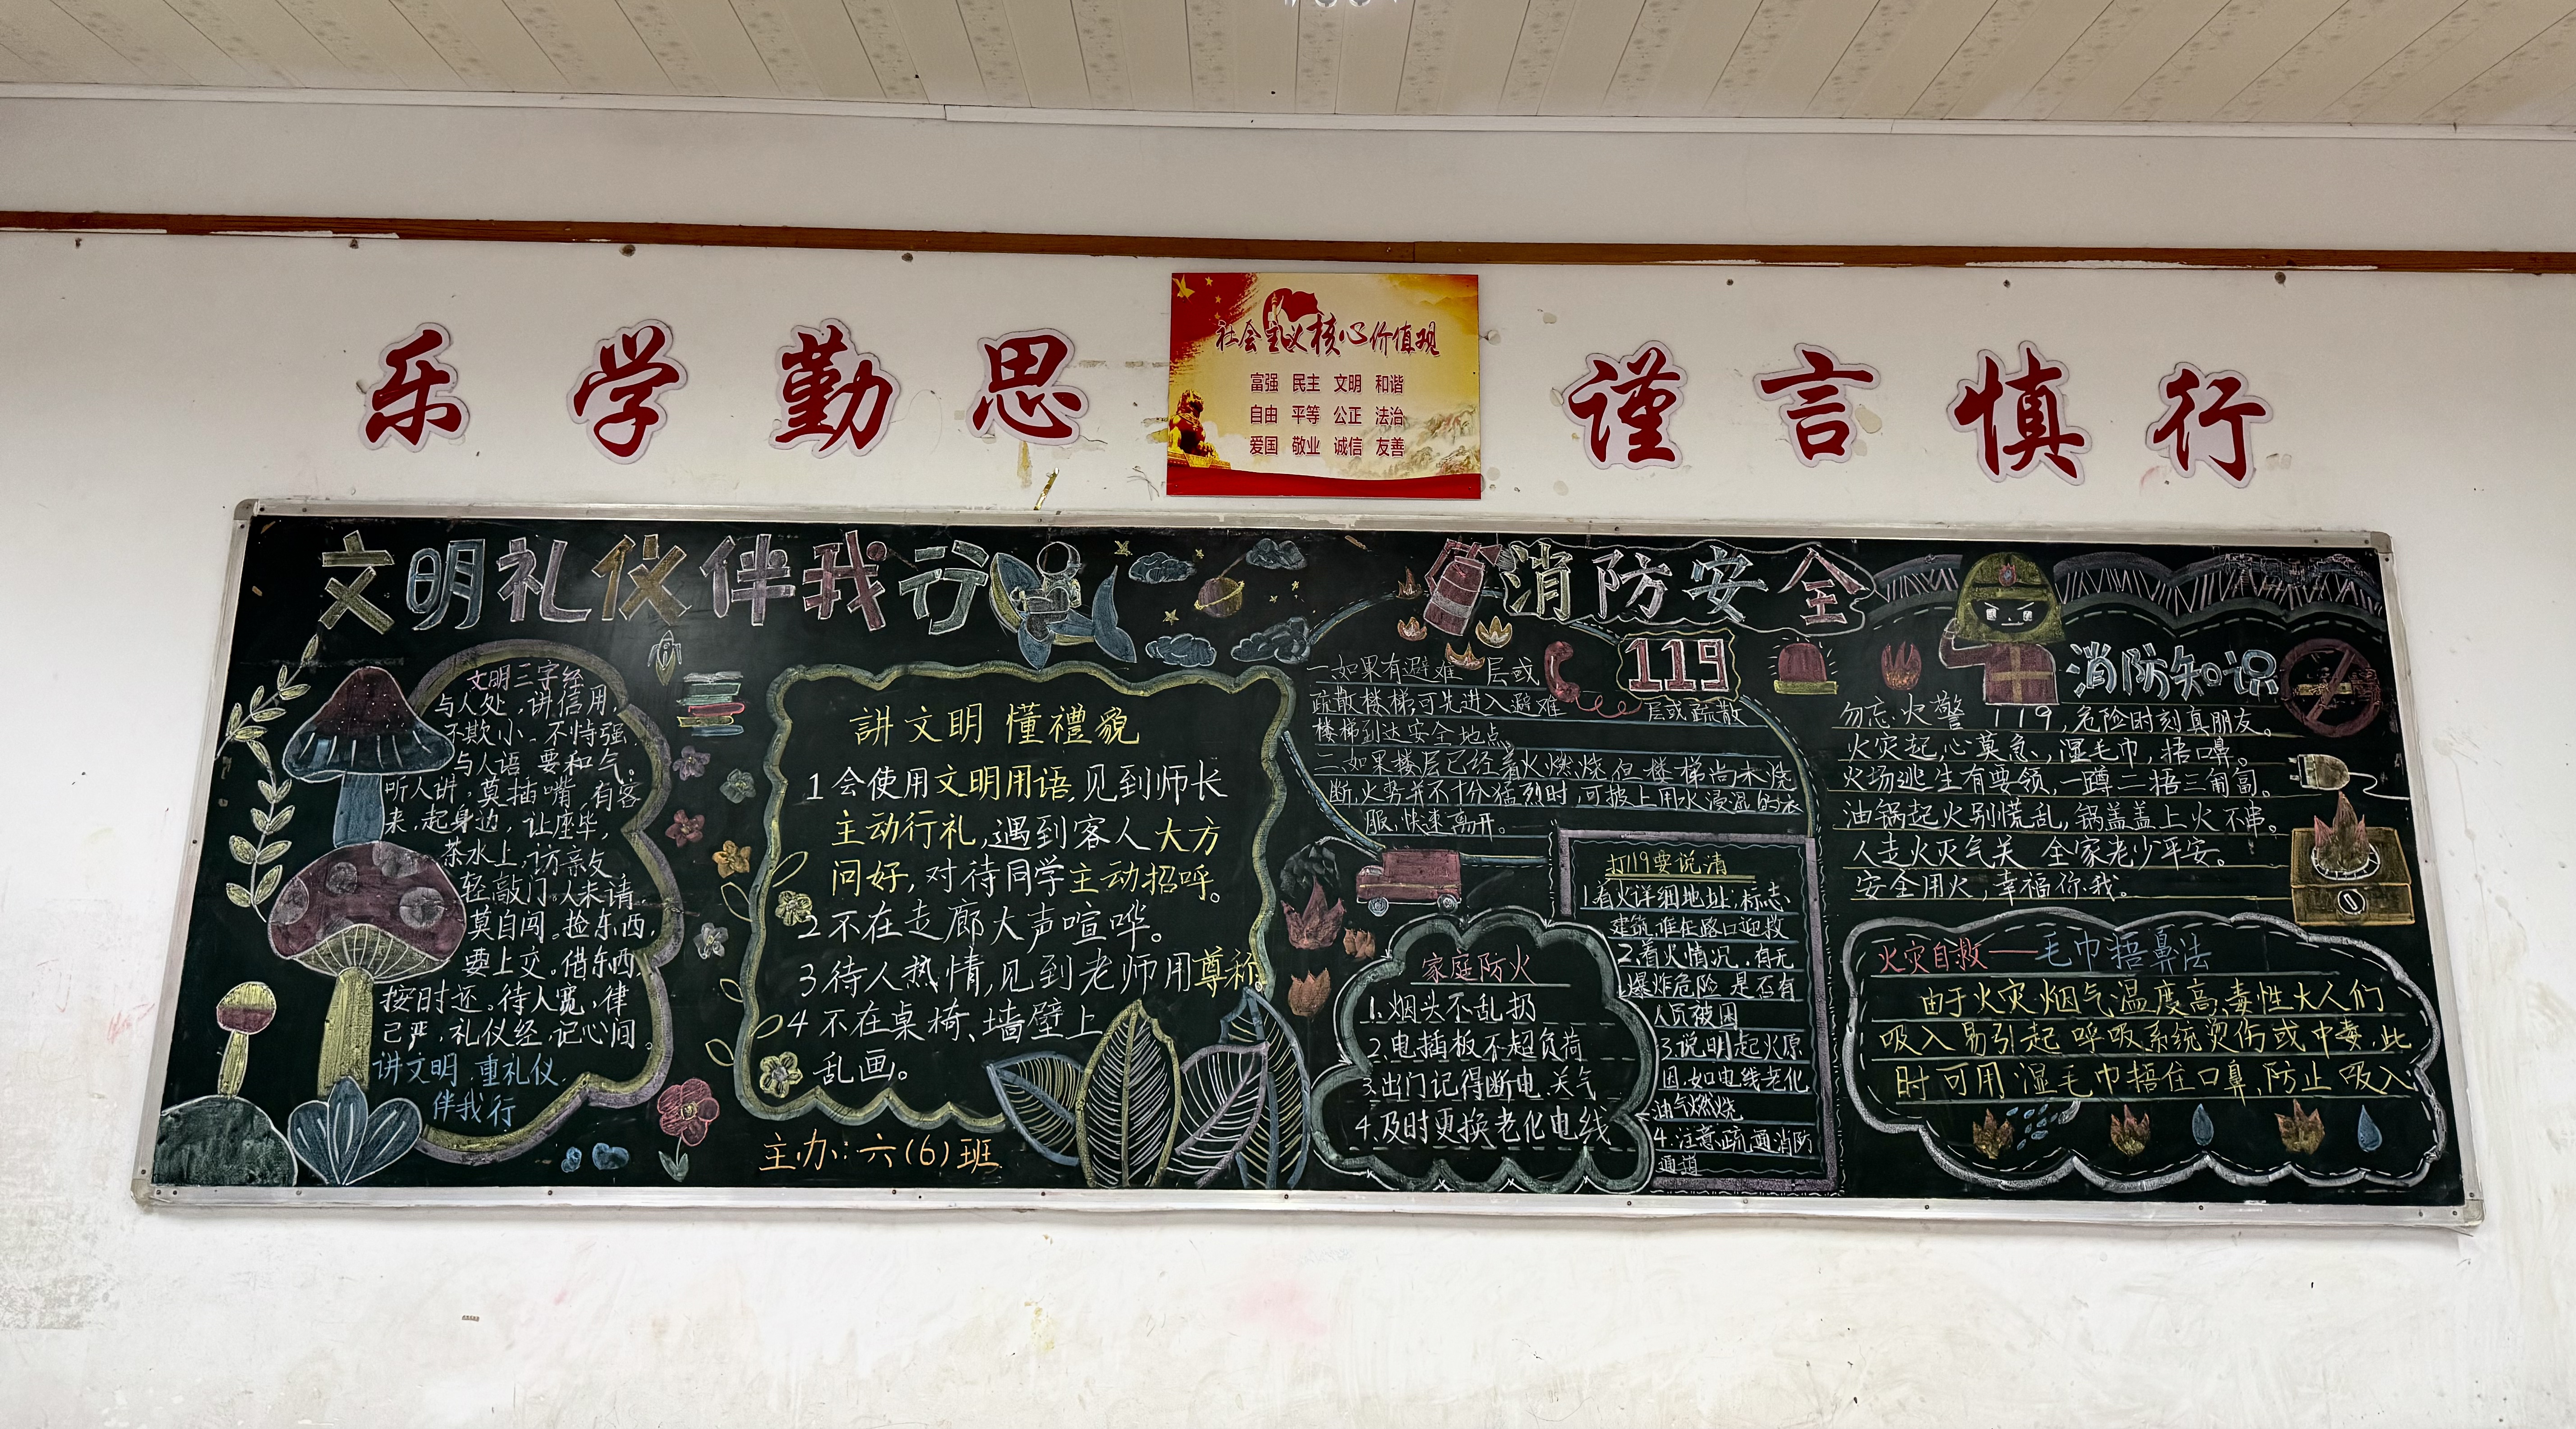 乐学勤思
社会主义核心价值观
富强 民主 文明 和谐
自由 平等 公正 法治
爱国 敬业 诚信 友善
谨言慎行
文明礼仪伴我行
文明三字经
与人处,讲信用,
不欺小、不恃强
与人语 要和气。
听人讲,莫插嘴,有客
来,起身边,让座毕,
茶水上,访亲友
轻敲门,人未请
莫自闯。捡东西,
要上交。借东西,
按时还。待人宽,律
己严,礼仪经,记心间。
讲文明,重礼仪,
伴我行
講文明 懂禮貌
1会使用文明用语,见到师长
主动行礼,遇到客人大方
问好,对待同学主动招呼。
2不在走廊大声喧哗。
3待人热情,见到老师用尊称。
4不在桌椅、墙壁上
乱画。
主办:六(6)班
消防安全
119
一.如果有避难 层或
疏散楼梯可先进入避难
层或疏散
楼梯到达安全地点。
二.如果楼层已经着火燃烧,但楼梯尚未烧
断,火势并不十分猛烈时,可披上用水浸湿的衣
服,快速离开。
家庭防火
1.烟头不乱扔
2.电插板不超负荷
3.出门记得断电.关气
4.及时更换老化电线
打119要说清
1.着火详细地址,标志
建筑,谁在路口迎救
2.着火情况,有无
爆炸危险 是否有
人员被困
3.说明起火原
因,如电线老化
油气燃烧
4.注意疏通消防
通道
消防知识
勿忘火警 119,危险时刻真朋友。
火灾起,心莫急,湿毛巾,捂口鼻。
火场逃生有要领,一蹲二捂三匍匐。
油锅起火别慌乱,锅盖盖上火不串。
人走火灭气关 全家老少平安。
安全用火,幸福你我。
火灾自救——毛巾捂鼻法
由于火灾烟气温度高,毒性大人们
吸入易引起呼吸系统烫伤或中毒,此
时可用湿毛巾捂住口鼻,防止吸入